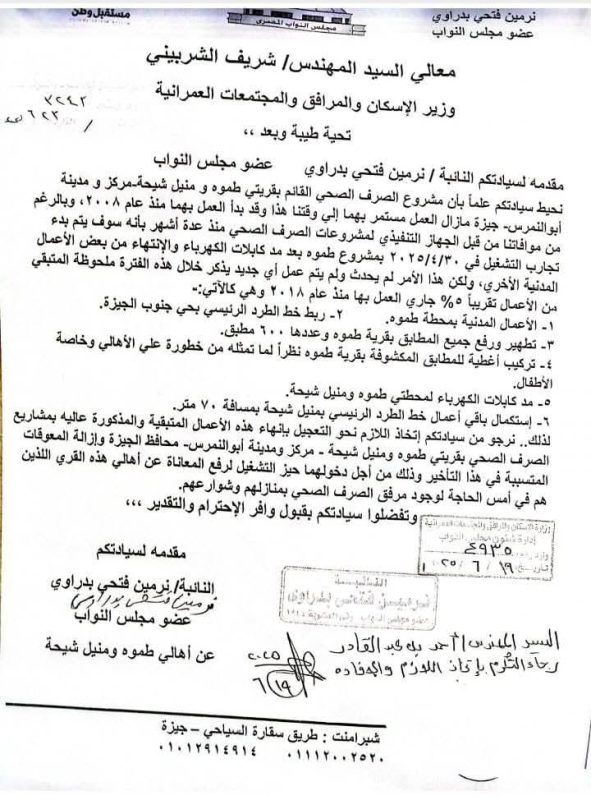 نرمين فتحي بدراوي
عضو مجلس النواب
مجلس النواب المصري
مستقبل وطن
معالي السيد المهندس/ شريف الشربيني
وزير الإسكان والمرافق والمجتمعات العمرانية
تحية طيبة وبعد ،،
٣٢٤٢
٦٢٣
مقدمه لسيادتكم النائبة / نرمين فتحي بدراوي عضو مجلس النواب
نحيط سيادتكم علماً بأن مشروع الصرف الصحي القائم بقريتي طموه و منيل شيحة-مركز و مدينة
أبوالنمرس- جيزة مازال العمل مستمر بهما إلي وقتنا هذا وقد بدأ العمل بهما منذ عام ٢٠٠٨، وبالرغم
من موافاتنا من قبل الجهاز التنفيذي لمشروعات الصرف الصحي منذ عدة أشهر بأنه سوف يتم بدء
تجارب التشغيل في ٢٠٢٥/٤/٣٠ بمشروع طموه بعد مد كابلات الكهرباء والإنتهاء من بعض الأعمال
المدنية الأخري، ولكن هذا الأمر لم يحدث ولم يتم عمل أي جديد يذكر خلال هذه الفترة ملحوظة المتبقي
من الأعمال تقريباً ٥% جاري العمل بها منذ عام ٢٠١٨ وهي كالآتي:-
١- الأعمال المدنية بمحطة طموه. ٢- ربط خط الطرد الرئيسي بحي جنوب الجيزة.
٣- تطهير ورفع جميع المطابق بقرية طموه وعددها ٦٠٠ مطبق.
٤- تركيب أغطية للمطابق المكشوفة بقرية طموه نظراً لما تمثله من خطورة علي الأهالي وخاصة
الأطفال.
٥- مد كابلات الكهرباء لمحطتي طموه ومنيل شيحة.
٦- إستكمال باقي أعمال خط الطرد الرئيسي بمنيل شيحة بمسافة ٧٠ متر.
لذلك.. نرجو من سيادتكم إتخاذ اللازم نحو التعجيل بإنهاء هذه الأعمال المتبقية والمذكورة عاليه بمشاريع
الصرف الصحي بقريتي طموه ومنيل شيحة - مركز ومدينة أبوالنمرس- محافظ الجيزة وإزالة المعوقات
المتسببة في هذا التأخير وذلك من أجل دخولهما حيز التشغيل لرفع المعاناة عن أهالي هذه القري اللذين
هم في أمس الحاجة لوجود مرفق الصرف الصحي بمنازلهم وشوارعهم.
وتفضلوا سيادتكم بقبول وافر الإحترام والتقدير ،،،
وزارة الإسكان والمرافق والمجتمعات العمرانية
إدارة شئون مجلس النواب
٤٩٣٥
٢٠٢٥/٦/١٩
مقدمه لسيادتكم
النائبة/ نرمين فتحي بدراوي
نرمين فتحي بدراوي
عضو مجلس النواب
عن أهالي طموه ومنيل شيحة
النائبة
نرمين فتحي بدراوي
عضو مجلس النواب
السيد المهندس/ أحمد عبد القادر
رجاء التكرم بإتخاذ اللازم والإفاده
٢٠٢٥
٦/١٩
شبرامنت : طريق سقارة السياحي – جيزة
٠١١١٢٠٠٢٥٢٠ ٠١٠١٢٩١٤٩١٤